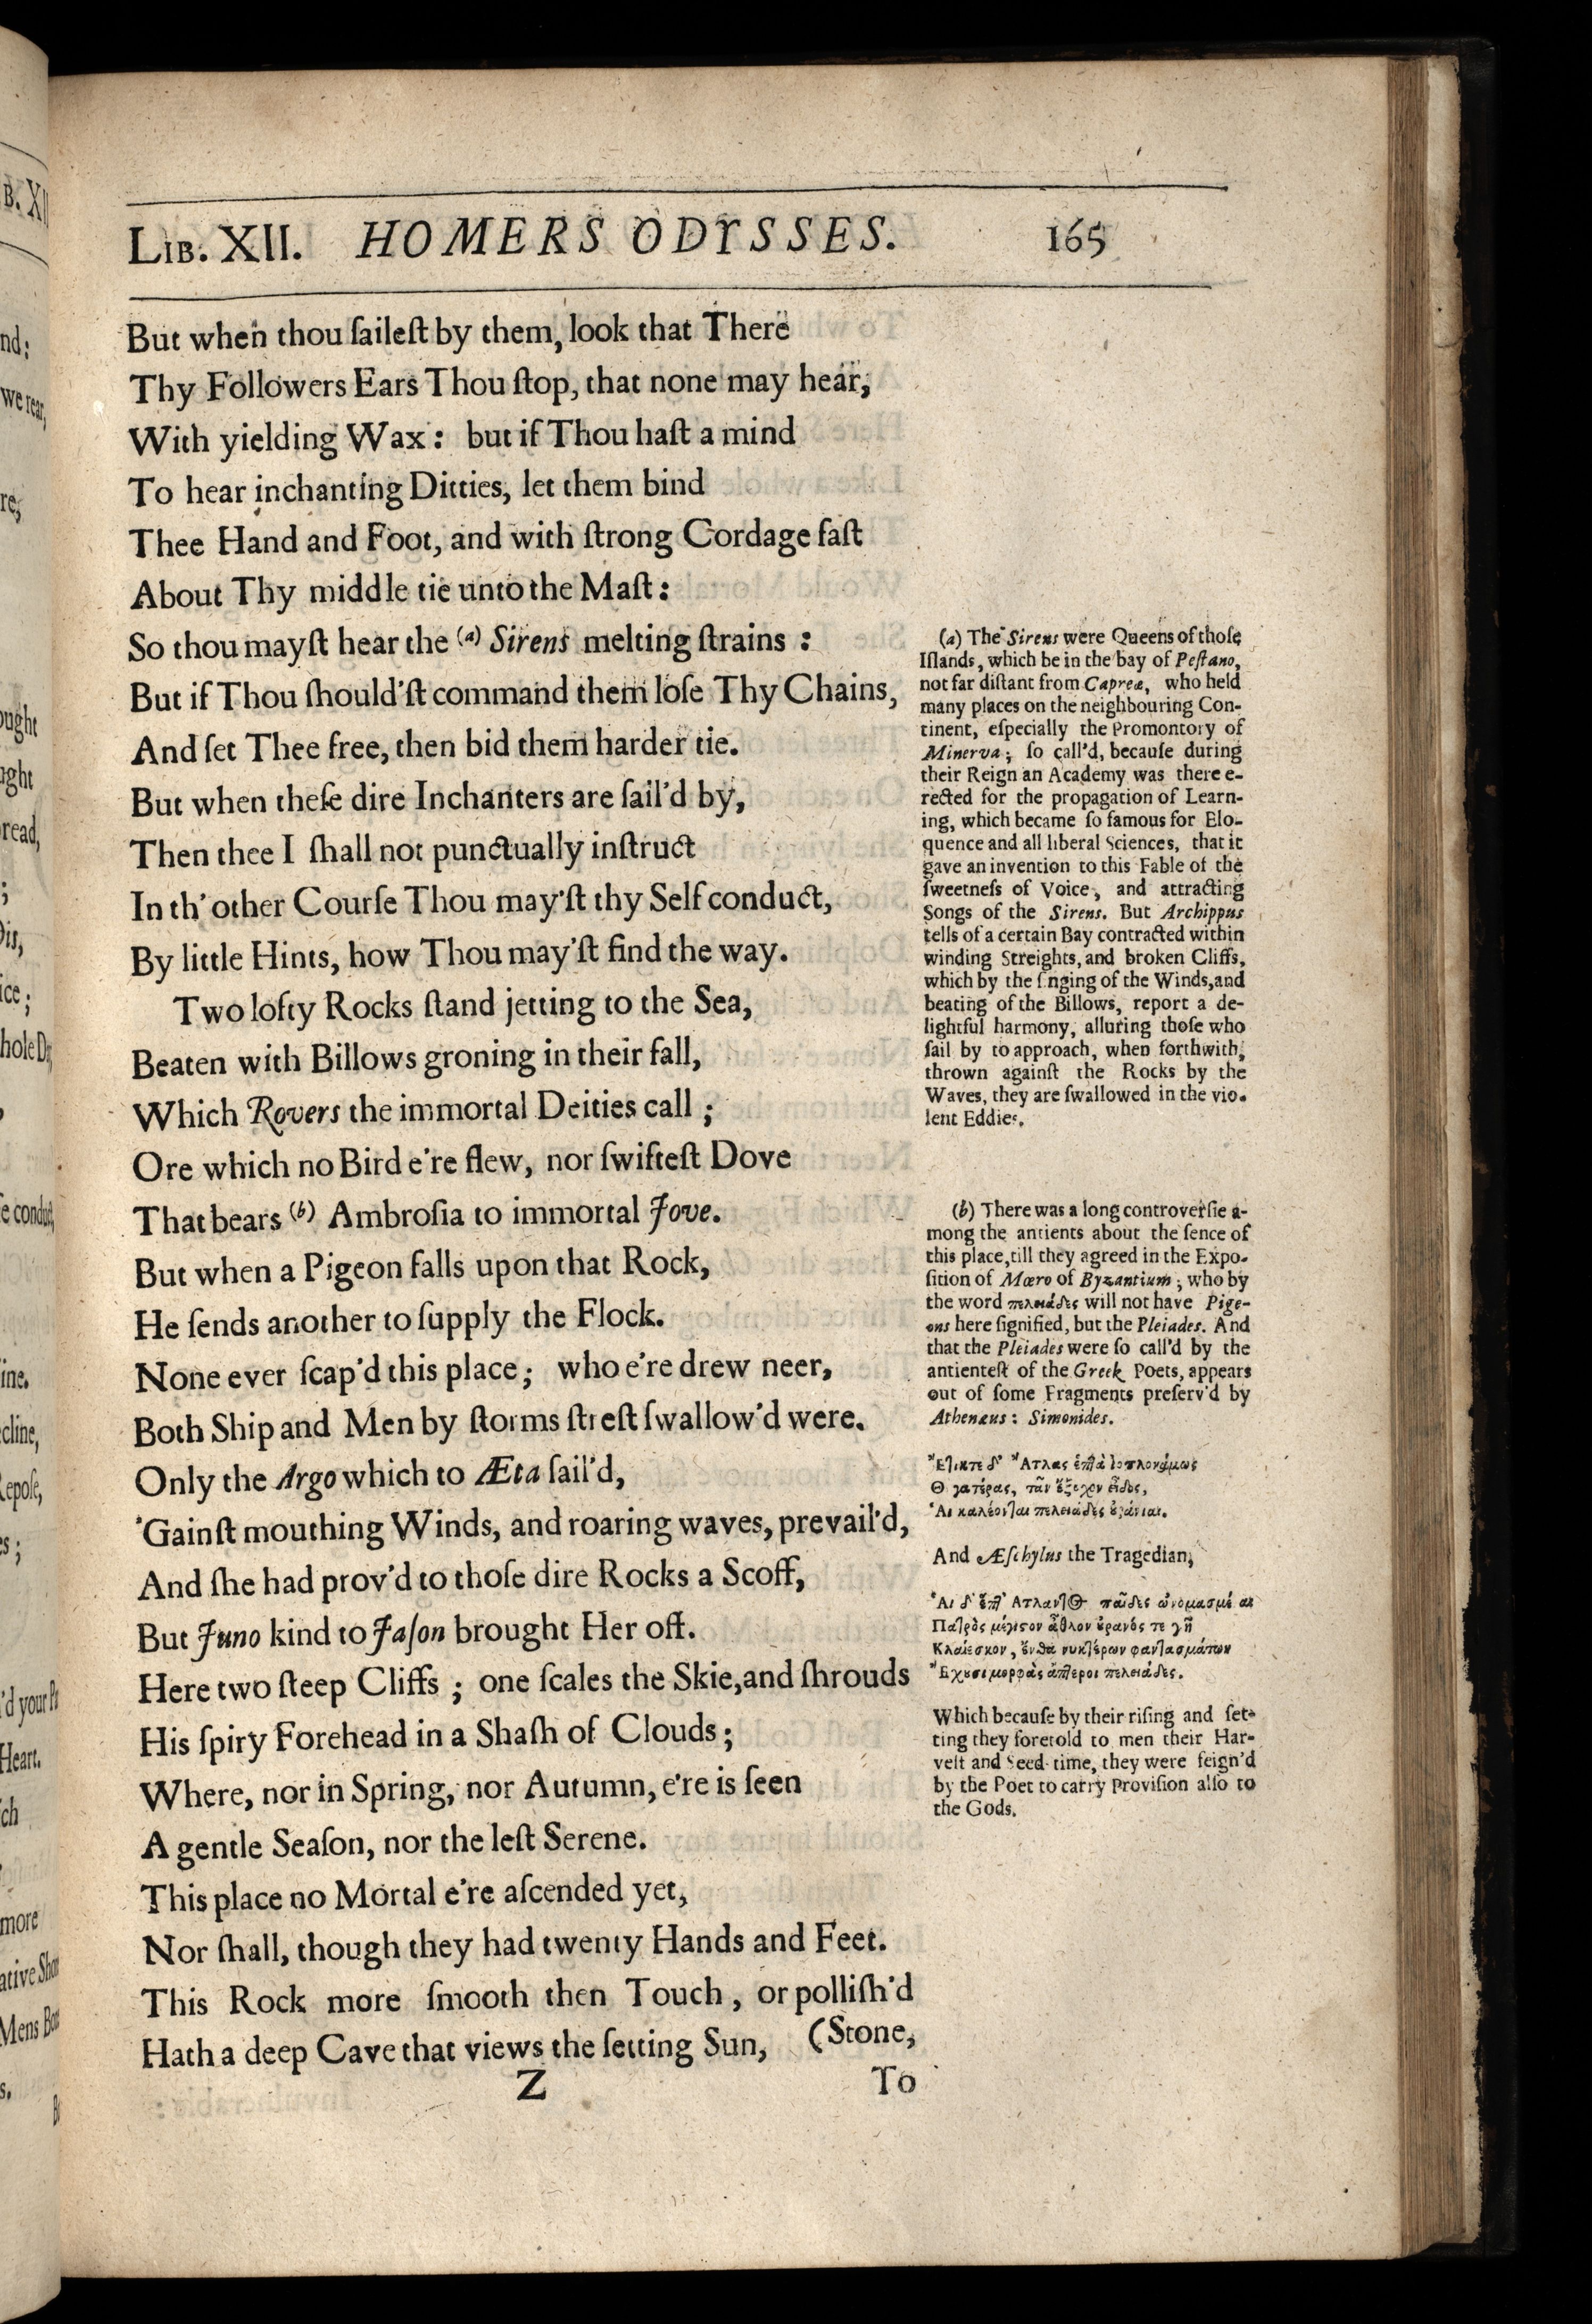 LIB. XII. HOMERS ODYSSES. 165
But when thou ſaileſt by them, look that There
Thy Followers Ears Thou ſtop, that none may hear,
With yielding Wax: but if Thou haſt a mind
To hear inchanting Ditties, let them bind
Thee Hand and Foot, and with ſtrong Cordage faſt
About Thy middle tie unto the Maſt:
So thou mayſt hear the (a) Sirens melting ſtrains:
But if Thou ſhould'ſt command them loſe Thy Chains,
And ſet Thee free, then bid them harder tie.
But when theſe dire Inchanters are ſail'd by,
Then thee I ſhall not punctually inſtruct
In th' other Courſe Thou may'ſt thy Self conduct,
By little Hints, how Thou may'ſt find the way.
Two lofty Rocks ſtand jetting to the Sea,
Beaten with Billows groning in their fall,
Which Rovers the immortal Deities call;
Ore which no Bird e're flew, nor ſwifteſt Dove
That bears (b) Ambroſia to immortal Jove.
But when a Pigeon falls upon that Rock,
He ſends another to ſupply the Flock.
None ever ſcap'd this place; who e're drew neer,
Both Ship and Men by ſtorms ſtreſt ſwallow'd were.
Only the Argo which to Æta ſail'd,
'Gainſt mouthing Winds, and roaring waves, prevail'd,
And ſhe had prov'd to thoſe dire Rocks a Scoff,
But Juno kind to Jaſon brought Her off.
Here two ſteep Cliffs; one ſcales the Skie, and ſhrouds
His ſpiry Forehead in a Shaſh of Clouds;
Where, nor in Spring, nor Autumn, e're is ſeen
A gentle Seaſon, nor the leſt Serene.
This place no Mortal e're aſcended yet,
Nor ſhall, though they had twenty Hands and Feet.
This Rock more ſmooth then Touch, or polliſh'd
(Stone,
Hath a deep Cave that views the ſetting Sun,
Z To
(a) The Sirens were Queens of thoſe
Iſlands, which be in the bay of Peſtano,
not far diſtant from Capreæ, who held
many places on the neighbouring Con-
tinent, eſpecially the Promontory of
Minerva; ſo call'd, becauſe during
their Reign an Academy was there e-
rected for the propagation of Learn-
ing, which became ſo famous for Elo-
quence and all liberal Sciences, that it
gave an invention to this Fable of the
ſweetneſs of Voice, and attracting
Songs of the Sirens. But Archippus
tells of a certain Bay contracted within
winding Streights, and broken Cliffs,
which by the ſinging of the Winds, and
beating of the Billows, report a de-
lightful harmony, alluring thoſe who
ſail by to approach, when forthwith,
thrown againſt the Rocks by the
Waves, they are ſwallowed in the vio-
lent Eddies.
(b) There was a long controverſie a-
mong the antients about the ſence of
this place, till they agreed in the Expo-
ſition of Mœro of Byzantium; who by
the word πελειάδες will not have Pige-
ons here ſignified, but the Pleiades. And
that the Pleiades were ſo call'd by the
antienteſt of the Greek Poets, appears
out of ſome Fragments preſerv'd by
Athenæus: Simonides.
Ἄτλας
εἶδος,
Ἁι καλέονται πελειάδες
And Æſchylus the Tragedian,
παῖδες
Πατρὸς μέγιστον ἆθλον
φαντασμάτων
πελειάδες.
Which becauſe by their riſing and ſet-
ting they foretold to men their Har-
veſt and Seed-time, they were feign'd
by the Poet to carry Proviſion alſo to
the Gods.